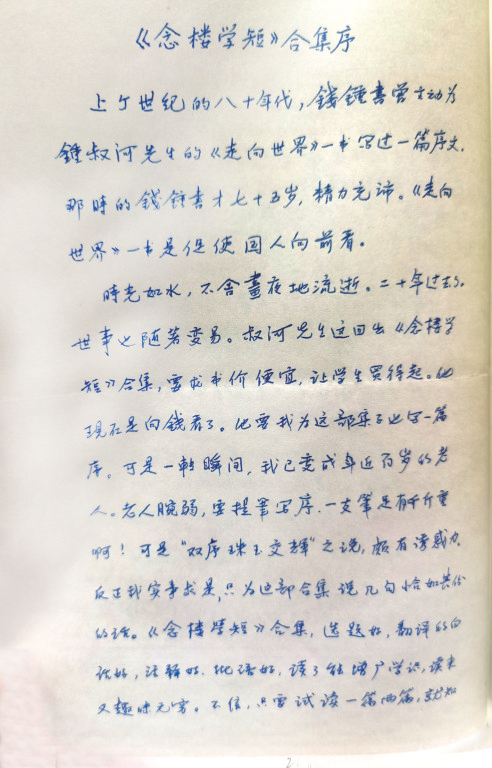 《念楼学短》合集序
上个世纪的八十年代，钱锺書曾主动为
鍾叔河先生的《走向世界》一书写过一篇序文。
那時的钱锺書才七十五岁，精力充沛。《走向
世界》一书是促使国人向前看。
時光如水，不舍晝夜地流逝。二十年过去了。
世事也随著变易。叔河先生这回出《念楼学
短》合集，要求书价便宜，让学生买得起。他
现在是向钱看了。他要我为这部集子也写一篇
序。可是一轉瞬间，我已变成年近百岁的老
人。老人腕弱，要提筆写序，一支筆足有千斤重
啊！可是“双序珠玉交辉”之说，颇有诱惑力，
反正我实事求是，只为这部合集说几句恰如其份
的话。《念楼學短》合集，选题好，翻译的白
话好，注释好，批语好，读了能增广学识，读来
又趣味无穷。不信，只要试读一篇两篇，就知